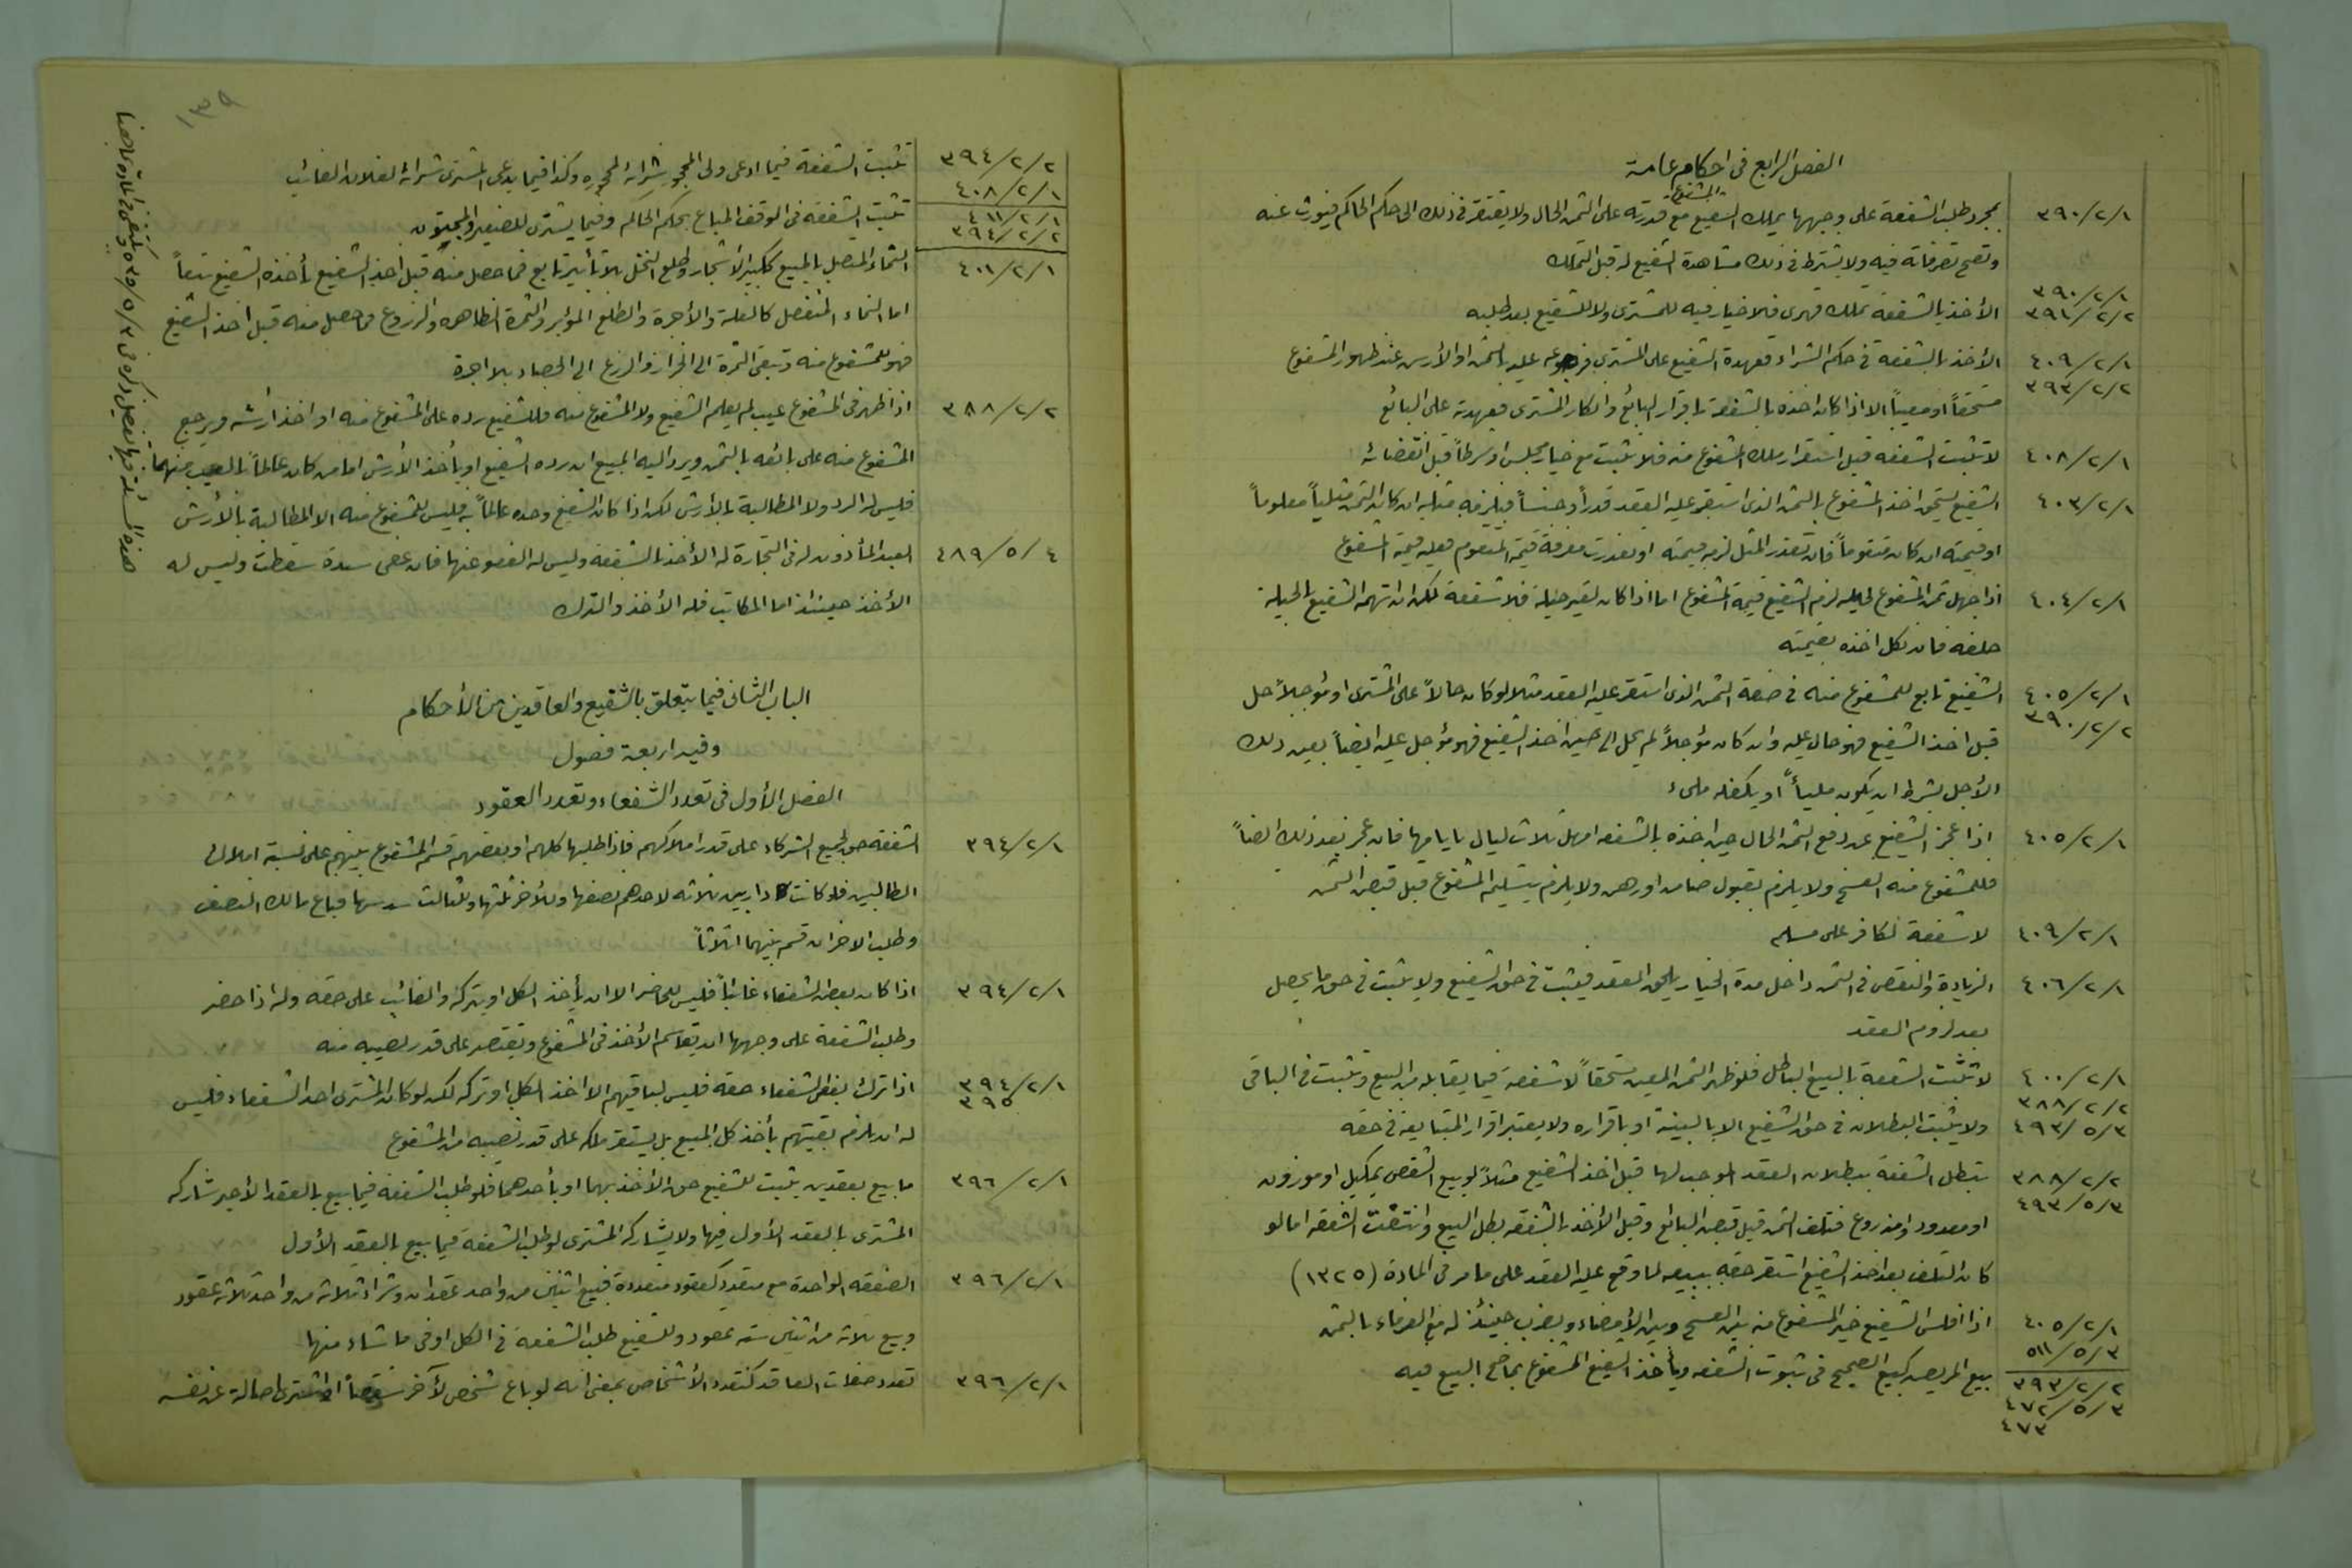 الفصل الرابع فى احكام عامة
٣٩٠/٢/١ بمجرد طلب الشفعة على وجهها يملك الشفيع المشفوع مع قدرته على الثمن الحال ولا يفتقر فى ذلك الى حكم الحاكم فيورث عنه
وتصح تصرفاته فيه ولا يشترط فى ذلك مشاهدة الشفيع له قبل التملك
٣٩٠/٢/١
٣٩١/٢/٢ الأخذ بالشفعة تملك قهرى فلا خيار فيه للمشترى ولا للشفيع بعد طلبه
٤٠٩/٢/١ الأخذ بالشفعة فى حكم الشراء فعهدة الشفيع على المشترى فرجوعه عليه بالثمن او الأرش عند ظهور المشفوع
٣٩٣/٢/٢ مستحقاً او معيباً الا اذا كان اخذه بالشفعة باقرار البائع وانكار المشترى فعهدته على البائع
٤٠٨/٢/١ لا تثبت الشفعه قبل استقرار ملك المشفوع منه فلا تثبت مع خيار مجلس او شرط قبل انقضائه
٤٠٣/٢/١ الشفيع يستحق اخذ المشفوع بالثمن الذى استقر عليه العقد قدراً وجنساً فيلزمه مثله ان كان الثمن مثلياً معلوماً
او قيمته ان كان متقوماً فان تعذر المثل لزمه قيمته او تعذرت معرفة قيمة المتقوم فعليه قيمة المشفوع
٤٠٤/٢/١ اذا جهل ثمن المشفوع لحيله لزم الشفيع قيمة المشفوع اما اذا كان لغير حيلة فلا شفعة لكن ان اتهمه الشفيع بالحيلة
حلفه فان نكل اخذه بقيمته
٤٠٥/٢/١ الشفيع تابع للمشفوع منه فى صفة الثمن الذى استقر عليه العقد مثلا لو كان حالاً على المشترى او مؤجلاً حل
٣٩٠/٢/٢ قبل اخذ الشفيع فهو حال عليه وان كان مؤجلاً لم يحل الى حين اخذ الشفيع فهو مؤجل عليه ايضاً بعين ذلك
الأجل بشرط ان يكون مليأً او يكفله ملىء
٤٠٥/٢/١ اذا عجز الشفيع عن دفع الثمن الحال حين اخذه بالشفعه امهل ثلاث ليال بايامها فان عجز بعد ذلك ايضاً
فللمشفوع منه الفسخ ولا يلزم بقبول ضامن او رهن ولا يلزم بتسليم المشفوع قبل قبض الثمن
٤٠٩/٢/١ لا شفعة لكافر على مسلم
٤٠٦/٢/١ الزيادة والنقص فى الثمن داخل مدة الخيار يلحق العقد فيثبت فى حق الشفيع ولا يثبت فى حق ما يحصل
بعد لزوم العقد
٤٠٠/٢/١ لا تثبت الشفعة بالبيع الباطل فلو ظهر الثمن المعين مستحقاً لا شفعة فيما يقابله من البيع وتثبت فى الباقى
٣٨٨/٢/٢
٤٩٣/٥/٣ ولا يثبت البطلان فى حق الشفيع الا بالبينة او باقراره ولا يعتبر اقرار المتبايعين فى حقه
٣٨٨/٢/٢ تبطل الشفعة ببطلان العقد الموجب لها قبل اخذ الشفيع مثلاً لو بيع الشقص بمكيل او موزون
٤٩٣/٥/٣ او معدود او مذروع فتلف الثمن قبل قبض البائع وقبل الأخذ بالشفعه بطل البيع وانتفت الشفعه اما لو
كان التلف بعد اخذ الشفيع استقر حقه ببيعه لما وقع عليه العقد على ما مر فى المادة (١٣٢٥)
٤٠٥/٢/١ اذا افلس الشفيع خير المشفوع منه بين الفسخ وبين الأمضاء ويضرب حينئذ له مع الغرماء بالثمن
٥١١/٥/٣
٣٩٣/٢/٢ بيع المريض كبيع الصحيح فى ثبوت الشفعه ويأخذ الشفيع المشفوع بما صح البيع فيه
٤٧٢/٥/٣
٤٧٣
١٣٩
٣٩٤/٢/٢ تثبت الشفعة فيما ادعى ولى المحجور شرائه لمحجوره وكذا فيما يدعى المشترى شرائه لفلان الغائب
٤٠٨/٢/١
٤١١/٢/١ تثبت الشفعه فى الوقف المباع بحكم الحاكم وفيما يشترى للصغير والمجنون
٣٩٤/٢/٢
٤٠١/٢/١ النماء المتصل بالمبيع ككبر الاشجار وطلع النخل بلا تأبير تابع فما حصل منه قبل اخذ الشفيع يأخذه الشفيع تبعاً
اما النماء المنفصل كالغلة والأجرة والطلع المؤبر والثمرة الظاهره والزروع فما حصل منه قبل اخذ الشفيع
فهو للمشفوع منه وتبقى الثمرة الى الجزاز والزرع الى الحصاد بلا اجرة
٣٨٨/٢/٢ اذا ظهر فى المشفوع عيب لم يعلم الشفيع ولا المشفوع منه فللشفيع رده على المشفوع منه او اخذ ارشه ويرجع
المشفوع منه على بائعه بالثمن ويرد اليه المبيع ان رده الشفيع او يأخذ الأرش اما من كان عالماً بالعيب منهما
فليس له الرد ولا المطالبة بالأرش لكن اذا كان الشفيع وحده عالماً به فليس للمشفوع منه الا المطالبة بالأرش
٤٨٩/٥/٤ العبد المأذون له فى التجارة له الأخذ بالشفعه وليس له العفو عنها فان عفى سيده سقطت وليس له
الأخذ حينئذ اما المكاتب فله الأخذ والترك
الباب الثانى فيما يتعلق بالشفيع والعاقدين من الأحكام
وفيه اربعة فصول
الفصل الأول فى تعدد الشفعاء وتعدد العقود
٣٩٤/٢/١ الشفعه حق لجميع الشركاء على قدر املاكهم فاذا طلبها كلهم او بعضهم قسم المشفوع بينهم على نسبة املاك
الطالبين فلو كانت دار بين ثلاثه لاحدهم نصفها وللأخر ثلثها وللثالث سدسها فباع مالك النصف
وطلب الاخران قسم بينهما اثلاثاً
٣٩٤/٢/١ اذا كان بعض الشفعاء غائباً فليس للحاضر الا ان يأخذ الكل او يتركه والغائب على حقه وله اذا حضر
وطلب الشفعة على وجهها ان يقاسم الأخذ فى المشفوع ويقتصر على قدر نصيبه منه
٣٩٤/٢/١ اذا ترك بعض الشفعاء حقه فليس لباقيهم الا اخذ الكل او تركه لكن لو كان المشترى احد الشفعاء فليس
٣٩٥
له ان يلزم بقيتهم بأخذ كل المبيع بل يستقر ملكه على قدر نصيبه من المشفوع
٣٩٦/٢/١ ما بيع بعقدين يثبت للشفيع حق الأخذ بهما او بأحدهما فلو طلب الشفعة فيما بيع بالعقد الأخير شاركه
المشترى بالعقد الأول فيها ولا يشاركه المشترى لو طلب الشفعة فيما بيع بالعقد الأول
٣٩٦/٢/١ الصفقه الواحدة مع متعدد كعقود متعددة فبيع اثنين من واحد عقدان وشراء ثلاثه من واحد ثلاثة عقود
وبيع ثلاثه من اثنين سته عقود وللشفيع طلب الشفعة فى الكل او فى ما شاء منها
٣٩٦/٢/١ تعدد صفات العاقد كتعدد الأشخاص بمعنى انه لو باع شخص لآخر شقصاً اشترى اصالة عن نفسه